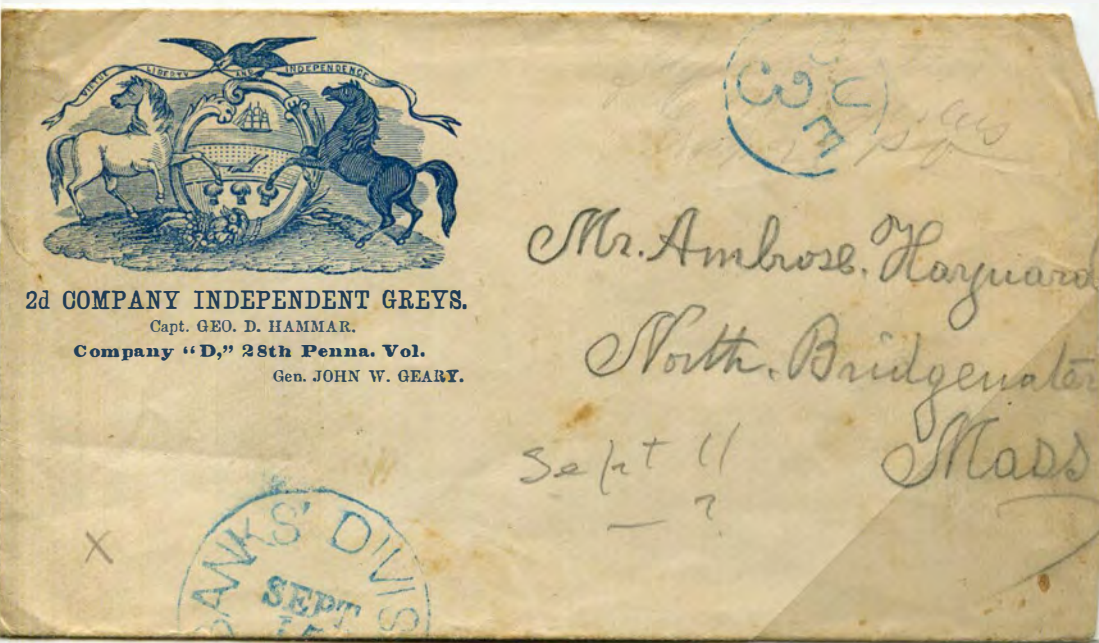 VIRTUE LIBERTY AND INDEPENDENCE
2d COMPANY INDEPENDENT GREYS.
Capt. GEO. D. HAMMAR.
Company “D,” 28th Penna. Vol.
Gen. JOHN W. GEARY.
Mr. Ambrose. Hayward
North. Bridgewater
Mass
Sept 11
— ?
X
BANKS' DIVIS
SEPT